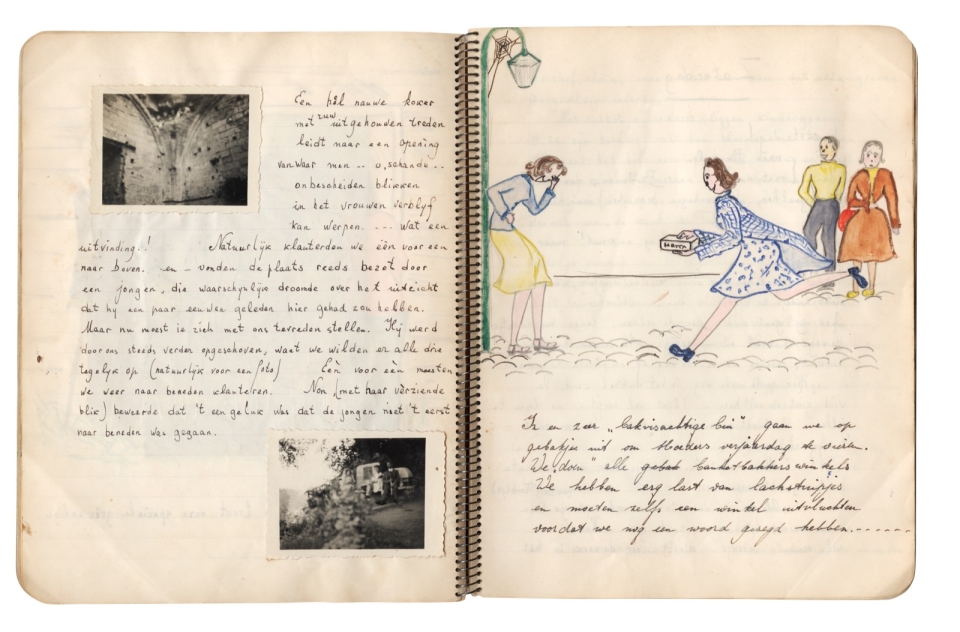 Een hèl nauwe koker
met ruw uitgehouwen treden
leidt naar een opening
vanwaar men -- o, schande --
onbescheiden blikken
in het vrouwen verblijf
kan werpen. --- Wat een
uitvinding!! Natuurlijk klauterden we één voor een
naar boven. en - vonden de plaats reeds bezet door
een jongen, die waarschynlyk droomde over het uitzicht
dat hij een paar eeuwen geleden hier gehad zou hebben.
Maar nu moest ie zich met ons tevreden stellen. Hij werd
door ons steeds verder opgeschoven, want we wilden er alle drie
tegelyk op (natuurlyk voor een foto) Eén voor één moesten
we weer naar beneden klauteren. Non (met haar vèrziende
blik) beweerde dat 't een geluk was dat de jongen niet 't eerst
naar beneden was gegaan.
HAVEN
In een zeer „bakvisachtige bui" gaan we op
gebakjes uit om Moeders verjaardag te vieren.
We „doen" alle gebak banketbakkerswinkels
We hebben erg last van lachstuipjes
en moeten zelfs een winkel uitvluchten
voordat we nog een woord gezegd hebben.------